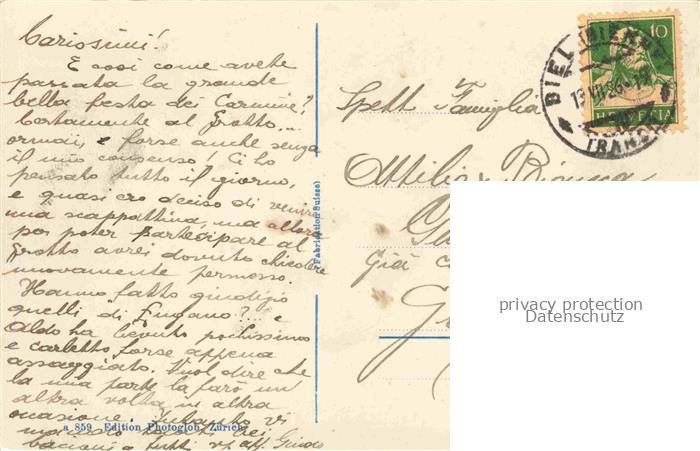 Carissimi!
E così come avete
passata la grande
bella festa dei Carmine?
Certamente al Grotto...
ormai, e forse anche senza
il mio consenso! Ci ho
pensato tutto il giorno,
e quasi ero deciso di venire
una scappattina, ma allora
poi poter partecipare al
Grotto avrei dovuto chiedere
nuovamente permesso.
Hanno fatto giudizio
quelli di Lugano?... e
Aldo ha bevuto pochissimo
e carletto forse appena
assaggiato. Vuol dire che
la mia parte la farò un
altra volta in altra
ocasione. Intanto vi
mando tanti bei
bacioni a tutti v. aff. Guido
a 859 Edition Photoglob, Zürich
(Fabrication Suisse)
Spett. Famiglia
Attilio Bianca
Già
BIEL (BIENNE)
TRANS
10
HELVETIA
privacy protection
Datenschutz